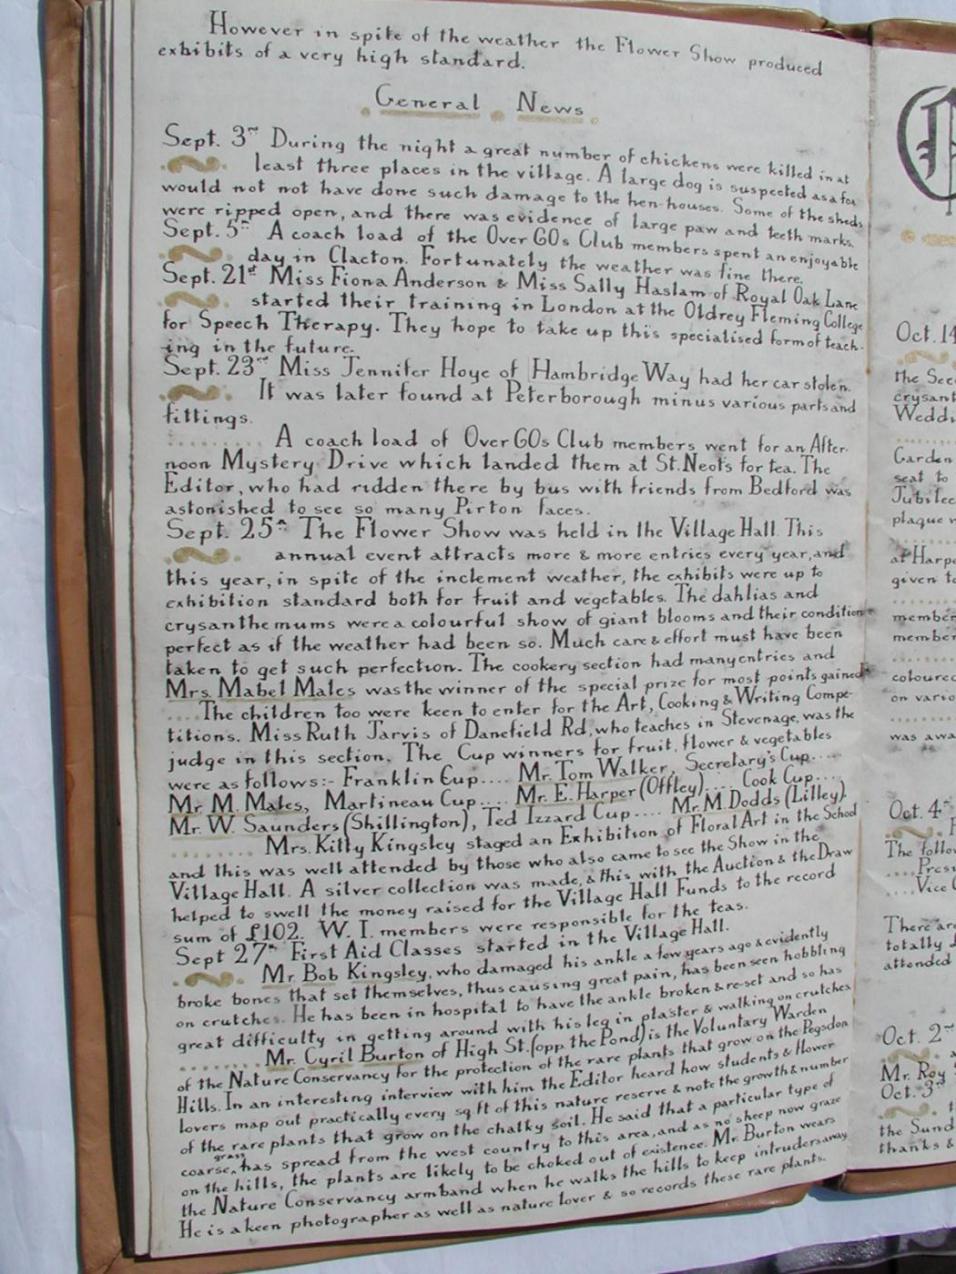 However in spite of the weather the Flower Show produced
exhibits of a very high standard.
General News
Sept. 3rd During the night a great number of chickens were killed in at
least three places in the village. A large dog is suspected as a fox
would not not have done such damage to the hen-houses. Some of the sheds
were ripped open, and there was evidence of large paw and teeth marks.
Sept. 5th A coach load of the Over 60s Club members spent an enjoyable
day in Clacton. Fortunately the weather was fine there.
Sept. 21st Miss Fiona Anderson & Miss Sally Haslam of Royal Oak Lane
started their training in London at the Oldrey Fleming College
for Speech Therapy. They hope to take up this specialised form of teach-
ing in the future.
Sept. 23rd Miss Jennifer Hoye of Hambridge Way had her car stolen.
It was later found at Peterborough minus various parts and
fittings.
......... A coach load of Over 60s Club members went for an After-
noon Mystery Drive which landed them at St. Neots for tea. The
Editor, who had ridden there by bus with friends from Bedford was
astonished to see so many Pirton faces.
Sept. 25th The Flower Show was held in the Village Hall. This
annual event attracts more & more entries every year, and
this year, in spite of the inclement weather, the exhibits were up to
exhibition standard both for fruit and vegetables. The dahlias and
crysanthemums were a colourful show of giant blooms and their condition
perfect as if the weather had been so. Much care & effort must have been
taken to get such perfection. The cookery section had many entries and
Mrs. Mabel Males was the winner of the special prize for most points gained.
.... The children too were keen to enter for the Art, Cooking & Writing Compe-
titions. Miss Ruth Jarvis of Danefield Rd, who teaches in Stevenage, was the
judge in this section. The Cup winners for fruit, flower & vegetables
were as follows:- Franklin Cup.... Mr. Tom Walker, Secretary's Cup....
Mr. M. Males, Martineau Cup... Mr. E. Harper (Offley).... Cook Cup....
Mr. W. Saunders (Shillington), Ted Izzard Cup.... Mr. M. Dodds (Lilley).
......... Mrs. Kitty Kingsley staged an Exhibition of Floral Art in the School
and this was well attended by those who also came to see the Show in the
Village Hall. A silver collection was made, & this with the Auction & the Draw
helped to swell the money raised for the Village Hall Funds to the record
sum of £102. W.I. members were responsible for the teas.
Sept 27th First Aid Classes started in the Village Hall.
Mr. Bob Kingsley, who damaged his ankle a few years ago & evidently
broke bones that set themselves, thus causing great pain, has been seen hobbling
on crutches. He has been in hospital to have the ankle broken & re-set and so has
great difficulty in getting around with his leg in plaster & walking on crutches
......... Mr. Cyril Burton of High St. (opp. the Pond) is the Voluntary Warden
of the Nature Conservancy for the protection of the rare plants that grow on the Pegsdon
Hills. In an interesting interview with him the Editor heard how students & flower
lovers map out practically every sq ft of this nature reserve & note the growth & number
of the rare plants that grow on the chalky soil. He said that a particular type of
coarse grass has spread from the west country to this area, and as no sheep now graze
on the hills, the plants are likely to be choked out of existence. Mr. Burton wears
the Nature Conservancy armband when he walks the hills to keep intruders away
He is a keen photographer as well as nature lover & so records these rare plants.
Oct. 14
the Sec
crysant
Weddi
Garden
seat to
Jubilee
plaque w
at Harpe
given to
member
member
coloured
on vario
was awa
Oct. 4
The follow
....Presi
....Vice C
There are
totally
attended
Oct. 2nd
Mr. Roy
Oct. 3rd
the Sund
thanks &